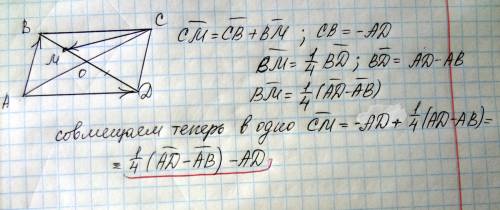 B C
M
O
A D
C̅M̅ = C̅B̅ + B̅M̅ ; CB = -AD
B̅M̅ = 1/4 B̅D̅ ; B̅D̅ = AD - AB
B̅M̅ = 1/4 (A̅D̅ - A̅B̅)
совмещаем теперь в одно C̅M̅ = -AD + 1/4 (AD - AB) =
= 1/4 (A̅D̅ - A̅B̅) - AD